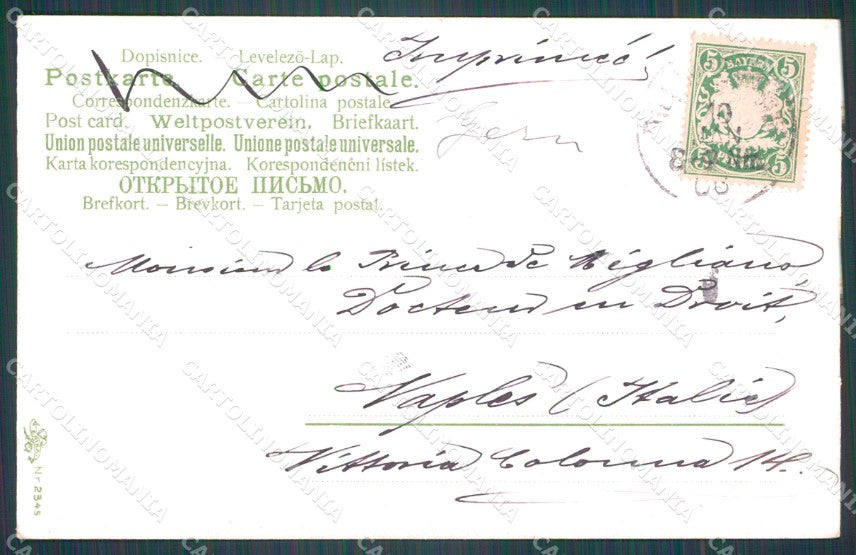 Dopisnice. Levelezö-Lap.
Postkarte. Carte postale.
Correspondenzkarte. – Cartolina postale.
Post card. Weltpostverein. Briefkaart.
Union postale universelle. Unione postale universale.
Karta korespondencyjna. Korespondenční lístek.
ОТКРЫТОЕ ПИСЬМО.
Brefkort. – Brevkort. – Tarjeta postal.
Imprimée!
5 BAYERN 5
5 5
Monsieur le Prince de Migliano,
Docteur en Droit,
Naples (Italie)
Vittoria Colonna 14.
Nr 2345
CARTOLINOMANIA